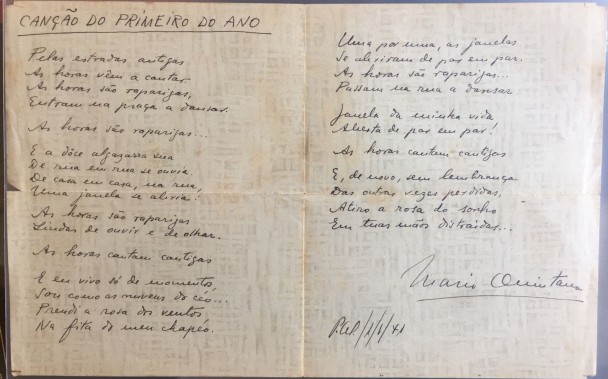 CANÇÃO DO PRIMEIRO DO ANO
Pelas estradas antigas
As horas vêm a cantar.
As horas são raparigas,
Entram na praça a dansar.
As horas são raparigas...
E a dôce algazarra sua
De rua em rua se ouvia.
De casa em casa, na rua,
Uma janela se abria.
As horas são raparigas
Lindas de ouvir e de olhar.
As horas cantam cantigas
E eu vivo só de momentos,
Sou como as nuvens do céu...
Prendi a rosa dos ventos
Na fita do meu chapeo.
Uma por uma, as janelas
Se abriram de par em par.
As horas são raparigas...
Passam na rua a dansar.
Janela da minha vida
Aberta de par em par!
As horas cantam cantigas
E, de novo, sem lembrança
Das outras vezes perdidas,
Atiro a rosa do sonho
Em tuas mãos distraidas...
Mario Quintana